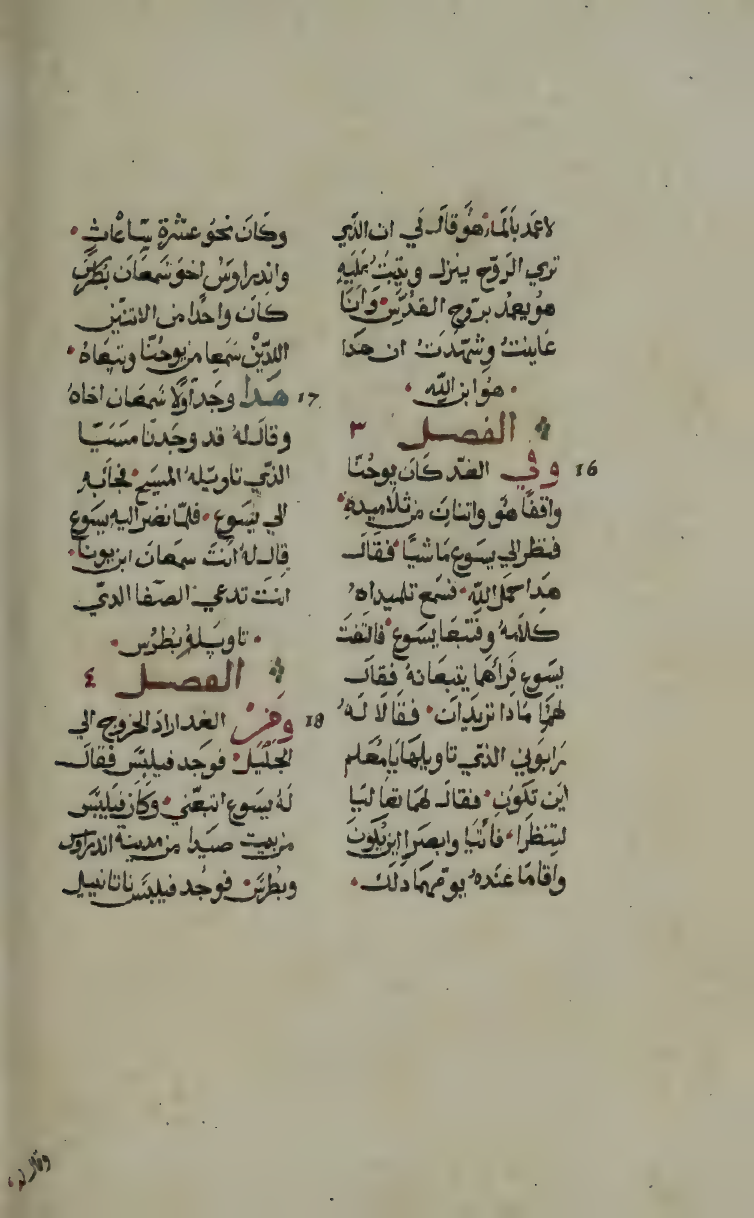 لاعمد بالماء هو قال لي ان الذي
تري الروح ينزل ويتبت عليه
هو يعمد بروح القدس وانا
عاينت وشهدت ان هدا
هو ابن الله
الفصل ٣
16 وفي الغد كان يوحنا
واقفا هو واتنان من تلاميده
فنظر الي يسوع ماشيا فقال
هدا حمل الله فسمع تلميداه
كلامه وفتبعا يسوع فالتفت
يسوع فراهما يتبعانه فقال
لهما مادا تريدان فقالا له
رابوني الذي تاويلها يامعلم
اين تكون فقال لهما تعاليا
لتنظرا فاتيا وابصرا اين يكون
واقاما عنده يومهما دلك
وكان نحو عشرة ساعات
واندراوس اخو شمعان بطرس
كان واحدا من الاتنين
اللدين سمعا من يوحنا وتبعاه
17 هدا وجد اولا شمعان اخاه
وقال له قد وجدنا مسيا
الذي تاويله المسيح فجا به
الي يسوع فلما نضر اليه يسوع
قال له انت سمعان ابن يونا
انت تدعي الصفا الدي
تاويله بطرس
الفصل ٤
18 ومن الغد اراد الخروج الي
الجليل فوجد فيلبس فقال
له يسوع اتبعني وكان فيلبس
من بيت صيدا من مدينة اندراوس
وبطرس فوجد فيلبس ناتانييل
وقال له